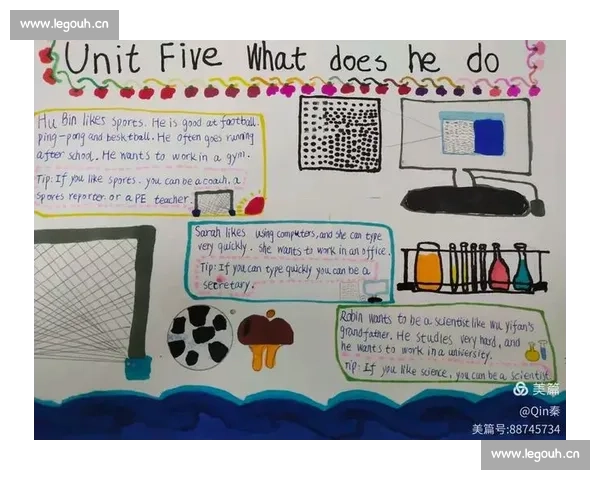 www.legouh.cn
Unit Five What does he do
Hu Bin likes sports. He is good at football.
ping-pong and besktball. He often goes running
after school. He wants to work in a gym.
Tip: If you like sports. you can be a coach, a
sports reporter or a PE teacher.
Sarah likes using computers, and she can type
very quickly. she wants to work in an office.
Tip: If you can type quickly you can be a
secretary.
Robin wants to be a scientist like Wu Yifan's
grandfather. He studies very hard, and
he wants to work in a university.
Tip: If you like science, you can be a scientist.
美篇
@Qin秦
美篇号:88745734
www.legouh.cn